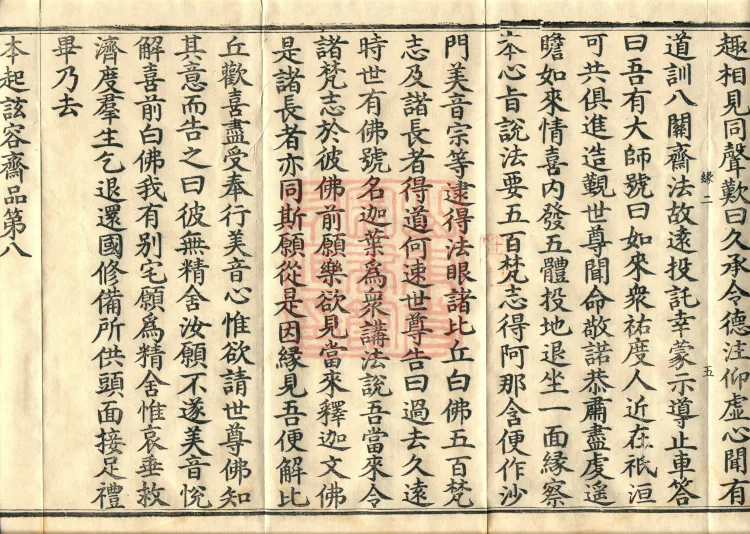 趣相見同聲歎曰久承令德注仰虛心聞有
道訓八關齋法故遠投託幸蒙示導止車答
曰吾有大師號曰如來衆祐度人近在祇洹
可共俱進造覲世尊聞命敬諾恭肅盡虔遥
瞻如來情喜內發五體投地退坐一面緣察
本心旨說法要五百梵志得阿那含便作沙
門美音宗等逮得法眼諸比丘白佛五百梵
志及諸長者得道何速世尊告曰過去久遠
時世有佛號名迦葉爲衆講法說吾當來今
諸梵志於彼佛前願樂欲見當來釋迦文佛
是諸長者亦同斯願從是因緣見吾便解比
丘歡喜盡受奉行美音心惟欲請世尊佛知
其意而告之曰彼無精舍汝願不遂美音悅
解喜前白佛我有別宅願爲精舍惟哀垂救
濟度羣生乞退還國修備所供頭面接足禮
畢乃去
本起該容齋品第八
緣二
五